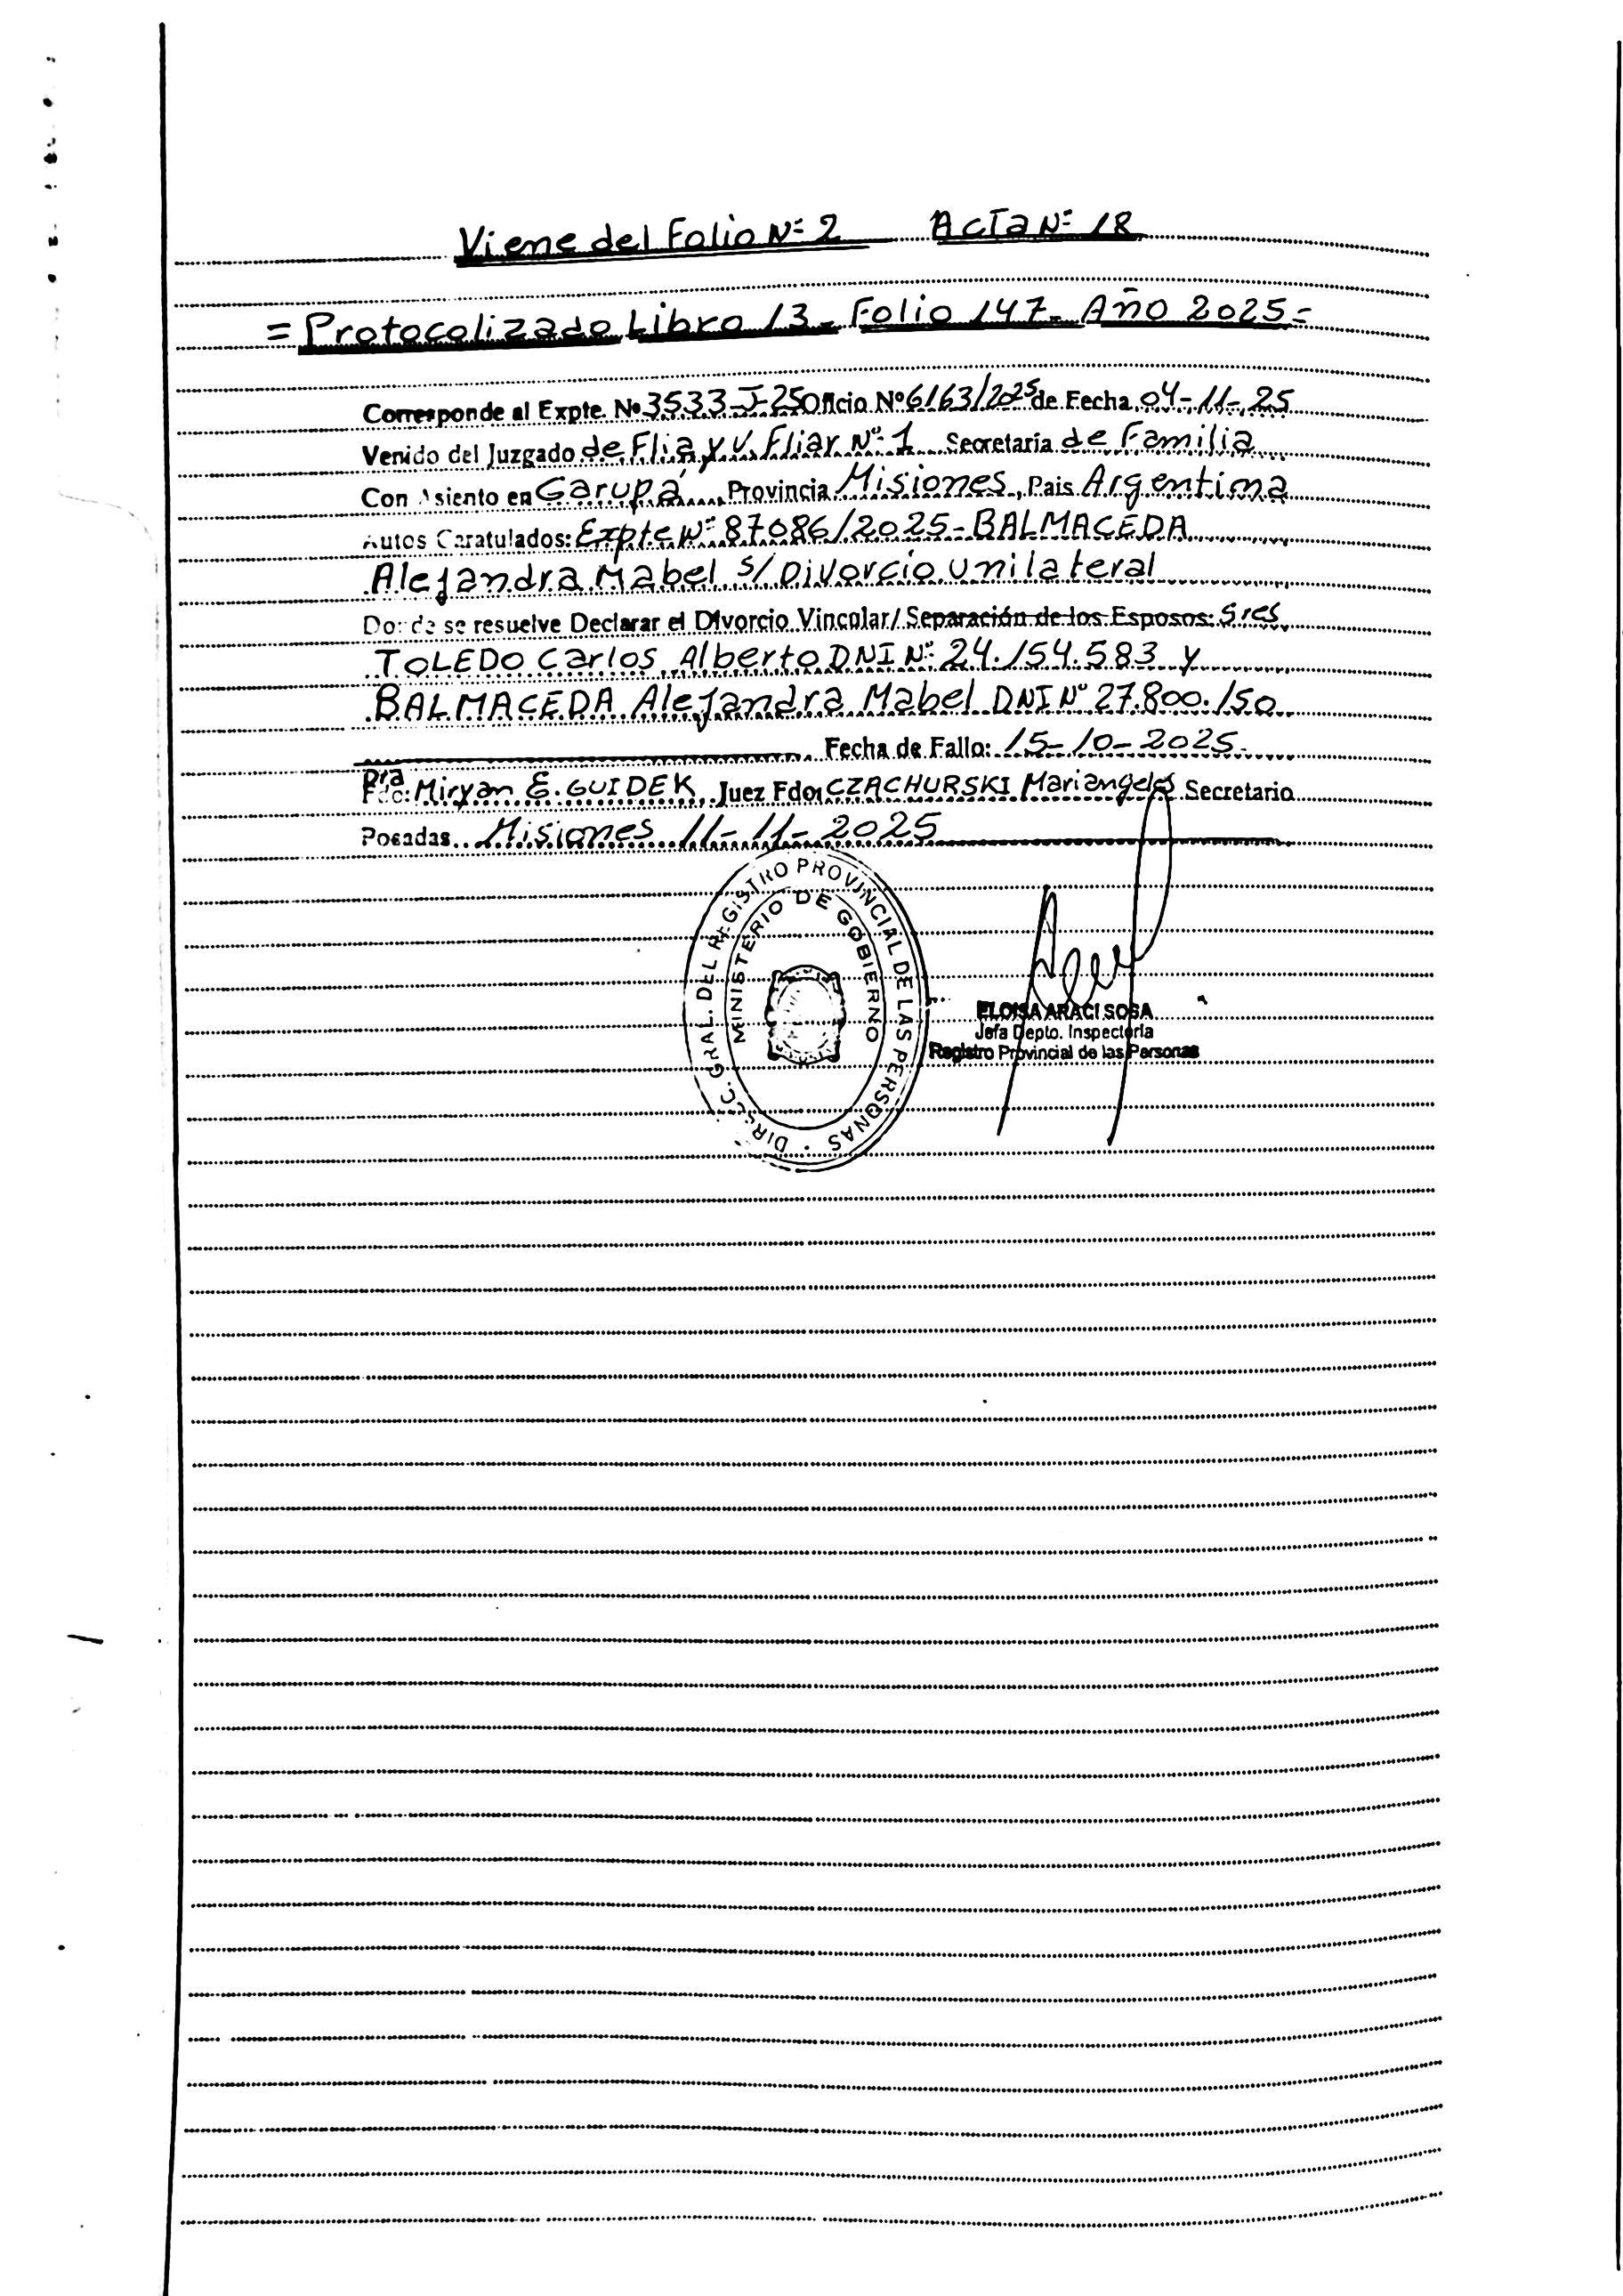 Viene del Folio Nº 2 Acta Nº 18
= Protocolizado Libro 13 - Folio 147 - Año 2025 -
Corresponde al Expte. Nº 3533-J-25 Oficio Nº 6163/2025 de Fecha 04-11-25
Venido del Juzgado de Flia y V. Fliar Nº 1 Secretaría de Familia
Con Asiento en Garupá, Provincia Misiones, Pais Argentina
Autos Caratulados: Expte Nº 87086/2025 - BALMACEDA
Alejandra Mabel s/ Divorcio Unilateral
Donde se resuelve Declarar el Divorcio Vincular/ Separación de los Esposos: Sres
TOLEDO Carlos Alberto DNI Nº 24.154.583 y
BALMACEDA Alejandra Mabel DNI Nº 27.800.150
Fecha de Fallo: 15-10-2025-
Dra
Fdo: Miryan E. GUIDEK, Juez Fdo: CZACHURSKI Mariangeles Secretario
Posadas, Misiones 11-11-2025
DIRECC. GRAL. DEL REGISTRO PROVINCIAL DE LAS PERSONAS
MINISTERIO DE GOBIERNO
ELOISA ARACI SOSA
Jefa Depto. Inspectoría
Registro Provincial de las Personas